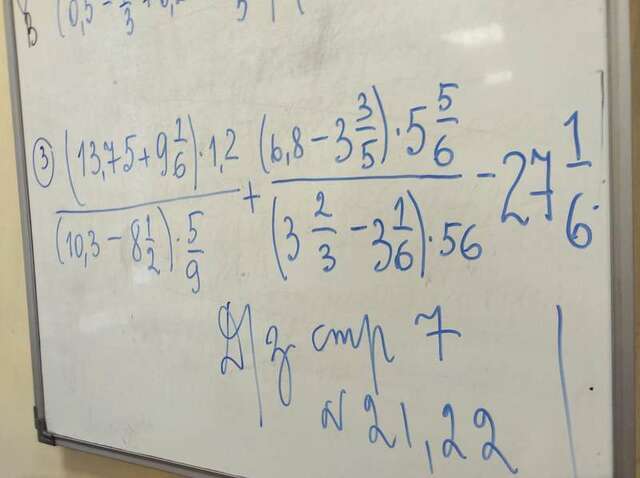 (0,5 -
③ (13,75 + 9 1/6) · 1,2 / (10,3 - 8 1/2) · 5/9 + (6,8 - 3 3/5) · 5 5/6 / (3 2/3 - 3 1/6) · 56 - 27 1/6.
Д/з стр 7
N 21, 22